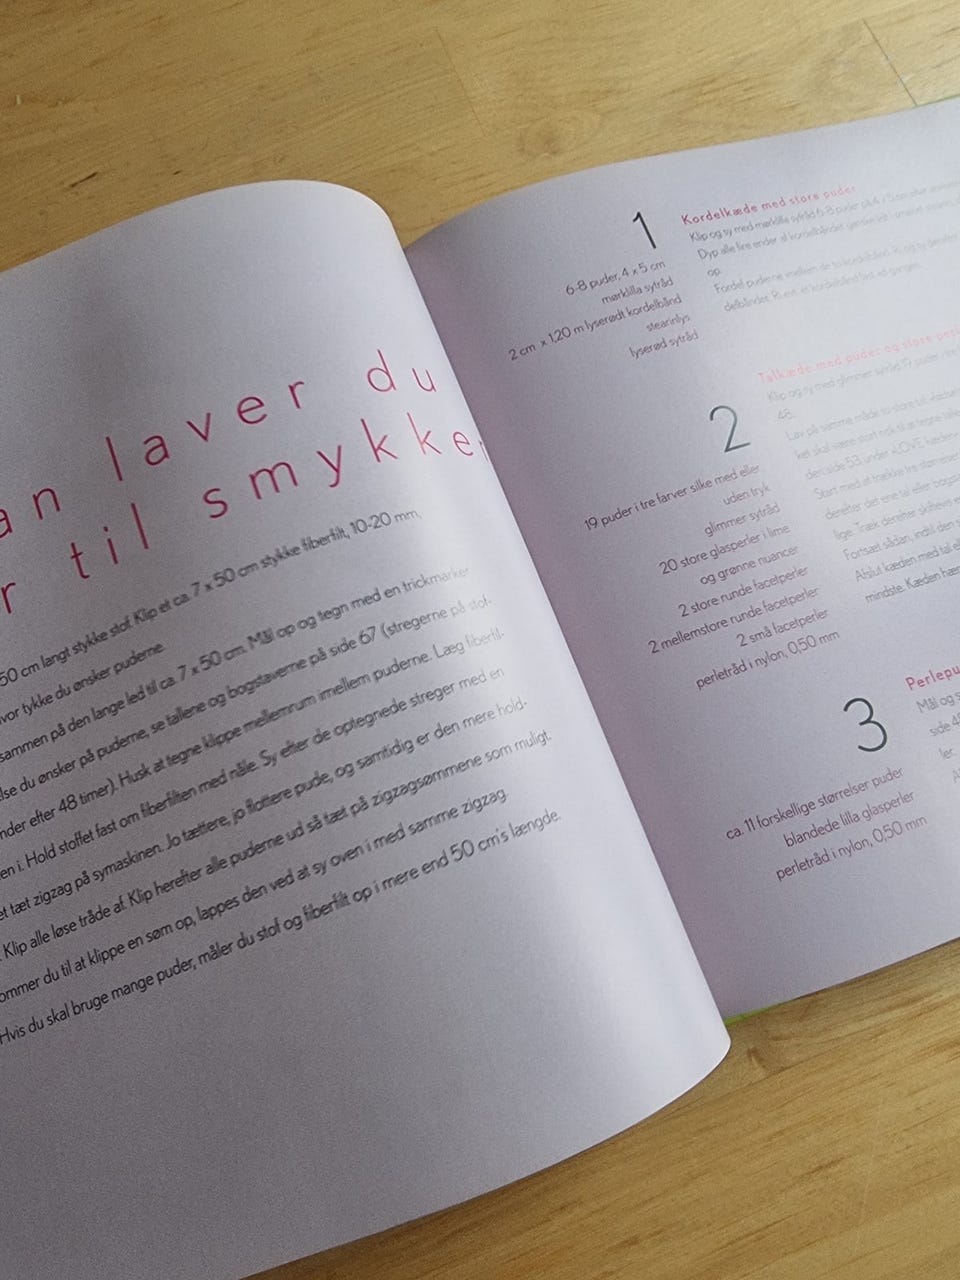 an laver du
r til smykker
50 cm langt stykke stof. Klip et ca. 7 x 50 cm stykke fiberfilt, 10-20 mm,
vor tykke du ønsker puderne.
sammen på den lange led til ca. 7 x 50 cm. Mål op og tegn med en trickmarker
lse du ønsker på puderne, se tallene og bogstaverne på side 67 (stregerne på stof-
nder efter 48 timer). Husk at tegne klippe mellemrum imellem puderne. Læg fiberfil-
en i. Hold stoffet fast om fiberfilten med nåle. Sy efter de optegnede streger med en
et tæt zigzag på symaskinen. Jo tættere, jo flottere pude, og samtidig er den mere hold-
. Klip alle løse tråde af. Klip herefter alle puderne ud så tæt på zigzagsømmene som muligt.
ommer du til at klippe en søm op, lappes den ved at sy oven i med samme zigzag.
Hvis du skal bruge mange puder, måler du stof og fiberfilt op i mere end 50 cm's længde.
1
6-8 puder, 4 x 5 cm
mørklilla sytråd
2 cm x 1,20 m lyserødt kordelbånd
stearinlys
lyserød sytråd
Kordelkæde med store puder
Klip og sy med mørklilla sytråd 6-8 puder på 4 x 5 cm efter
Dyp alle fire ender af kordelbåndet ganske let i smeltet stearin,
op.
Fordel puderne imellem de to kordelbånd. Ri og sy derefter
delbåndet. Ri evt. et kordelbånd fast ad gangen.
2
19 puder i tre farver silke med eller
uden tryk
glimmer sytråd
20 store glasperler i lime
og grønne nuancer
2 store runde facetperler
2 mellemstore runde facetperler
2 små facetperler
perletråd i nylon, 0,50 mm
Talkæde med puder og store perl
Klip og sy med glimmer sytråd 19 puder i tre
48.
Lav på samme måde to store tal
ket skal være stort nok til at tegne
den side 53 under »LOVE kæden«
Start med at trække tre størrelser
derefter det ene tal eller bogs
lige. Træk derefter skiftevis e
Fortsæt sådan, indtil den s
Afslut kæden med tal el
mindste. Kæden hæn
3
ca. 11 forskellige størrelser puder
blandede lilla glasperler
perletråd i nylon, 0,50 mm
Perlepu
Mål og s
side 48
ler.
A